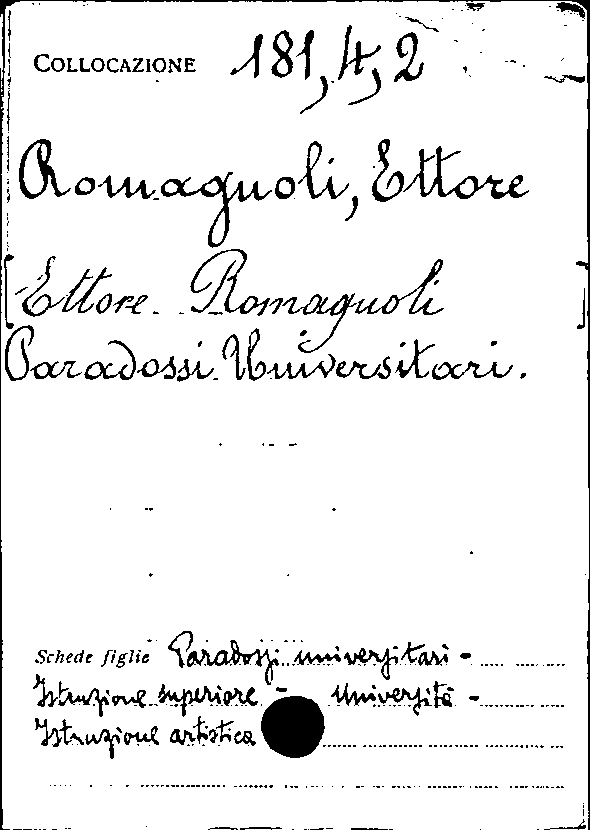 COLLOCAZIONE 181,4,2
Romagnoli, Ettore
[Ettore Romagnoli]
Paradossi Universitari.
Schede figlie Paradossi universitari -
Istruzione superiore - Università -
Istruzione artistica